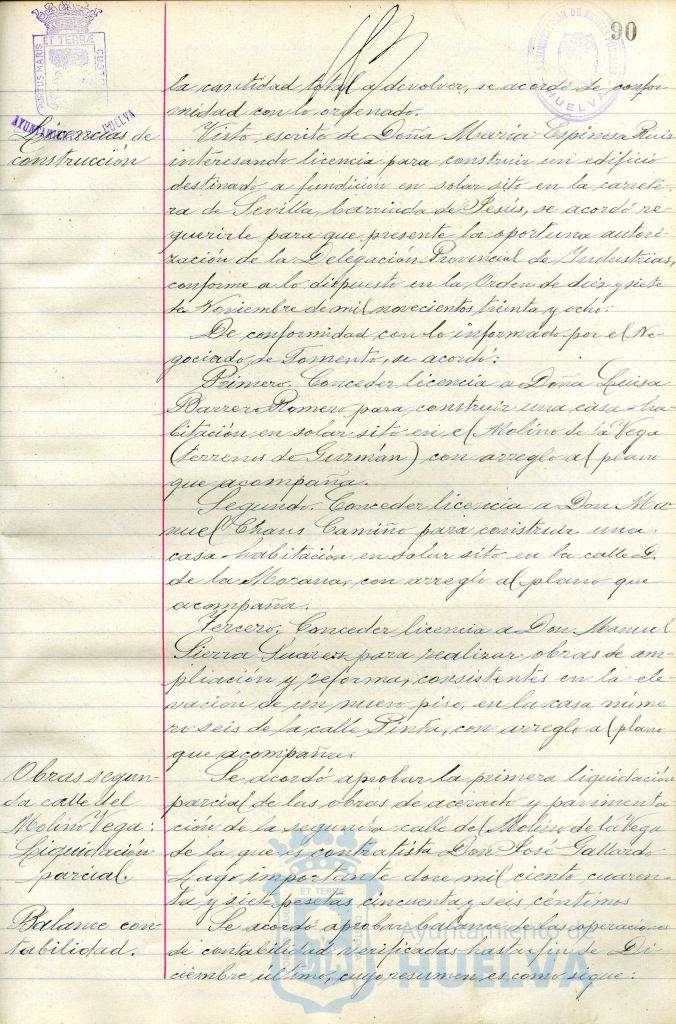 90
PORTUS MARIS ET TERRÆ CUSTODIA
AYUNTAMIENTO HUELVA
HUELVA
la cantidad total a devolver, se acordó de confor-
midad con lo ordenado.
Licencias de
construcción
Visto escrito de Doña María Espinosa Ruiz
interesando licencia para construir un edificio
destinado a fundición en solar sito en la carrete-
ra de Sevilla, barriada de Jesús, se acordó re-
querirle para que presente la oportuna autori-
zación de la Delegación Provincial de Industrias,
conforme a lo dispuesto en la Orden de diez y siete
de Noviembre de mil novecientos treinta y ocho.
De conformidad con lo informado por el Ne-
gociado de Fomento, se acordó:
Primero. Conceder licencia a Doña Luisa
Barrero Romero para construir una casa-ha-
bitación en solar sito en el Molino de la Vega
(terrenos de Guzmán) con arreglo al plano
que acompaña.
Segundo. Conceder licencia a Don Ma-
nuel Chans Camiño para construir una
casa-habitación en solar sito en la calle G.
de la Morana, con arreglo al plano que
acompaña.
Tercero: Conceder licencia a Don Manuel
Sierra Suárez para realizar obras de am-
pliación y reforma, consistentes en la ele-
vación de un nuevo piso, en la casa núme-
ro seis de la calle Pinta, con arreglo al plano
que acompaña.
Obras segun-
da calle del
Molino Vega:
Liquidación
parcial.
Se acordó aprobar la primera liquidación
parcial de las obras de acerado y pavimenta-
ción de la segunda calle del Molino de la Vega
de la que es contratista Don José Gallardo
Lago, importante doce mil ciento cuaren-
ta y siete pesetas cincuenta y seis céntimos
Balance con-
tabilidad.
Se acordó aprobar balance de las operaciones
de contabilidad verificadas hasta fin de Di-
ciembre último, cuyo resumen es como sigue:
Ayuntamiento de
HUELVA